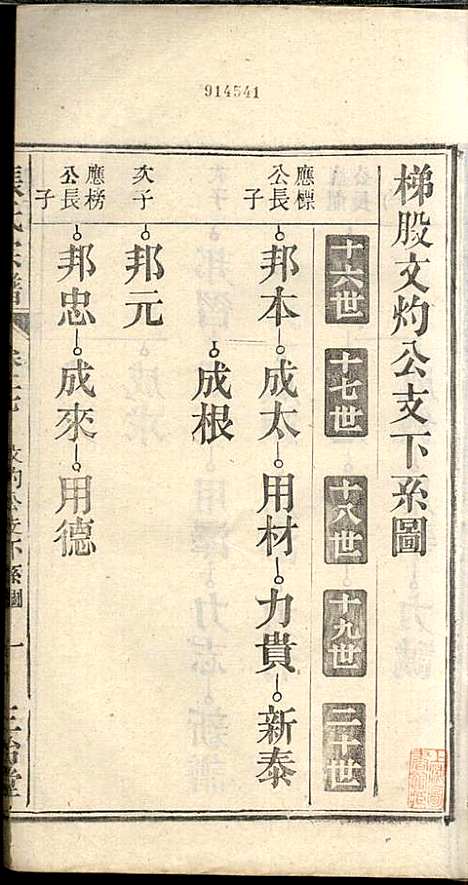 914541
梯股文灼公支下系圖
十六世 十七世 十八世 十九世 二十世
應標公長子 邦本 成太 用材 力貴 新泰
成根
次子 邦元
應榜公長子 邦忠 成來 用德
文灼公支下系圖 一